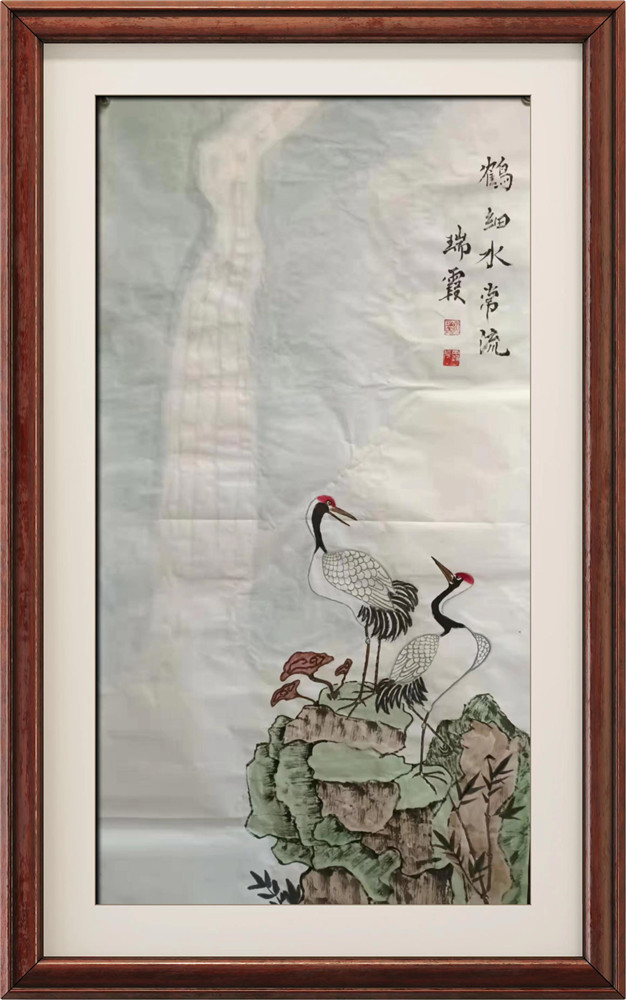 鹤细水常流
瑞霞